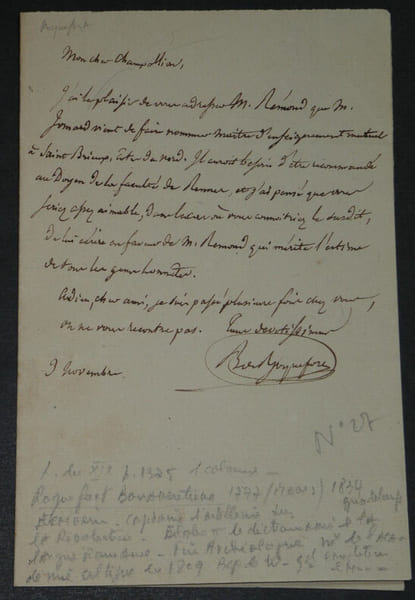 Roquefort
Mon cher Champollion,
J'ai le plaisir de vous adresser M. Rémond que M.
Jomard vient de faire nommer maître d'enseignement mutuel
à Saint Brieux, Côtes du nord. Il auroit besoin d'être recommandé
au Doyen de la faculté de Rennes, et j'ai pensé que vous
seriez assez aimable, dans le cas où vous connoitriez le susdit,
de lui écrire en faveur de M. Rémond qui mérite l'estime
de tous les gens honnêtes.
Adieu, cher ami, je suis passé plusieurs fois chez vous,
on ne vous rencontre pas. Tuus devotissimus
B. de Roquefort
3 Novembre.
N° 27
t. du XIII p. 1325 1 colonne
Roquefort Bonaventure 1777 (Mons) 1834 Guadeloupe
capitaine d'artillerie
la Révolution
langue Romane
1809